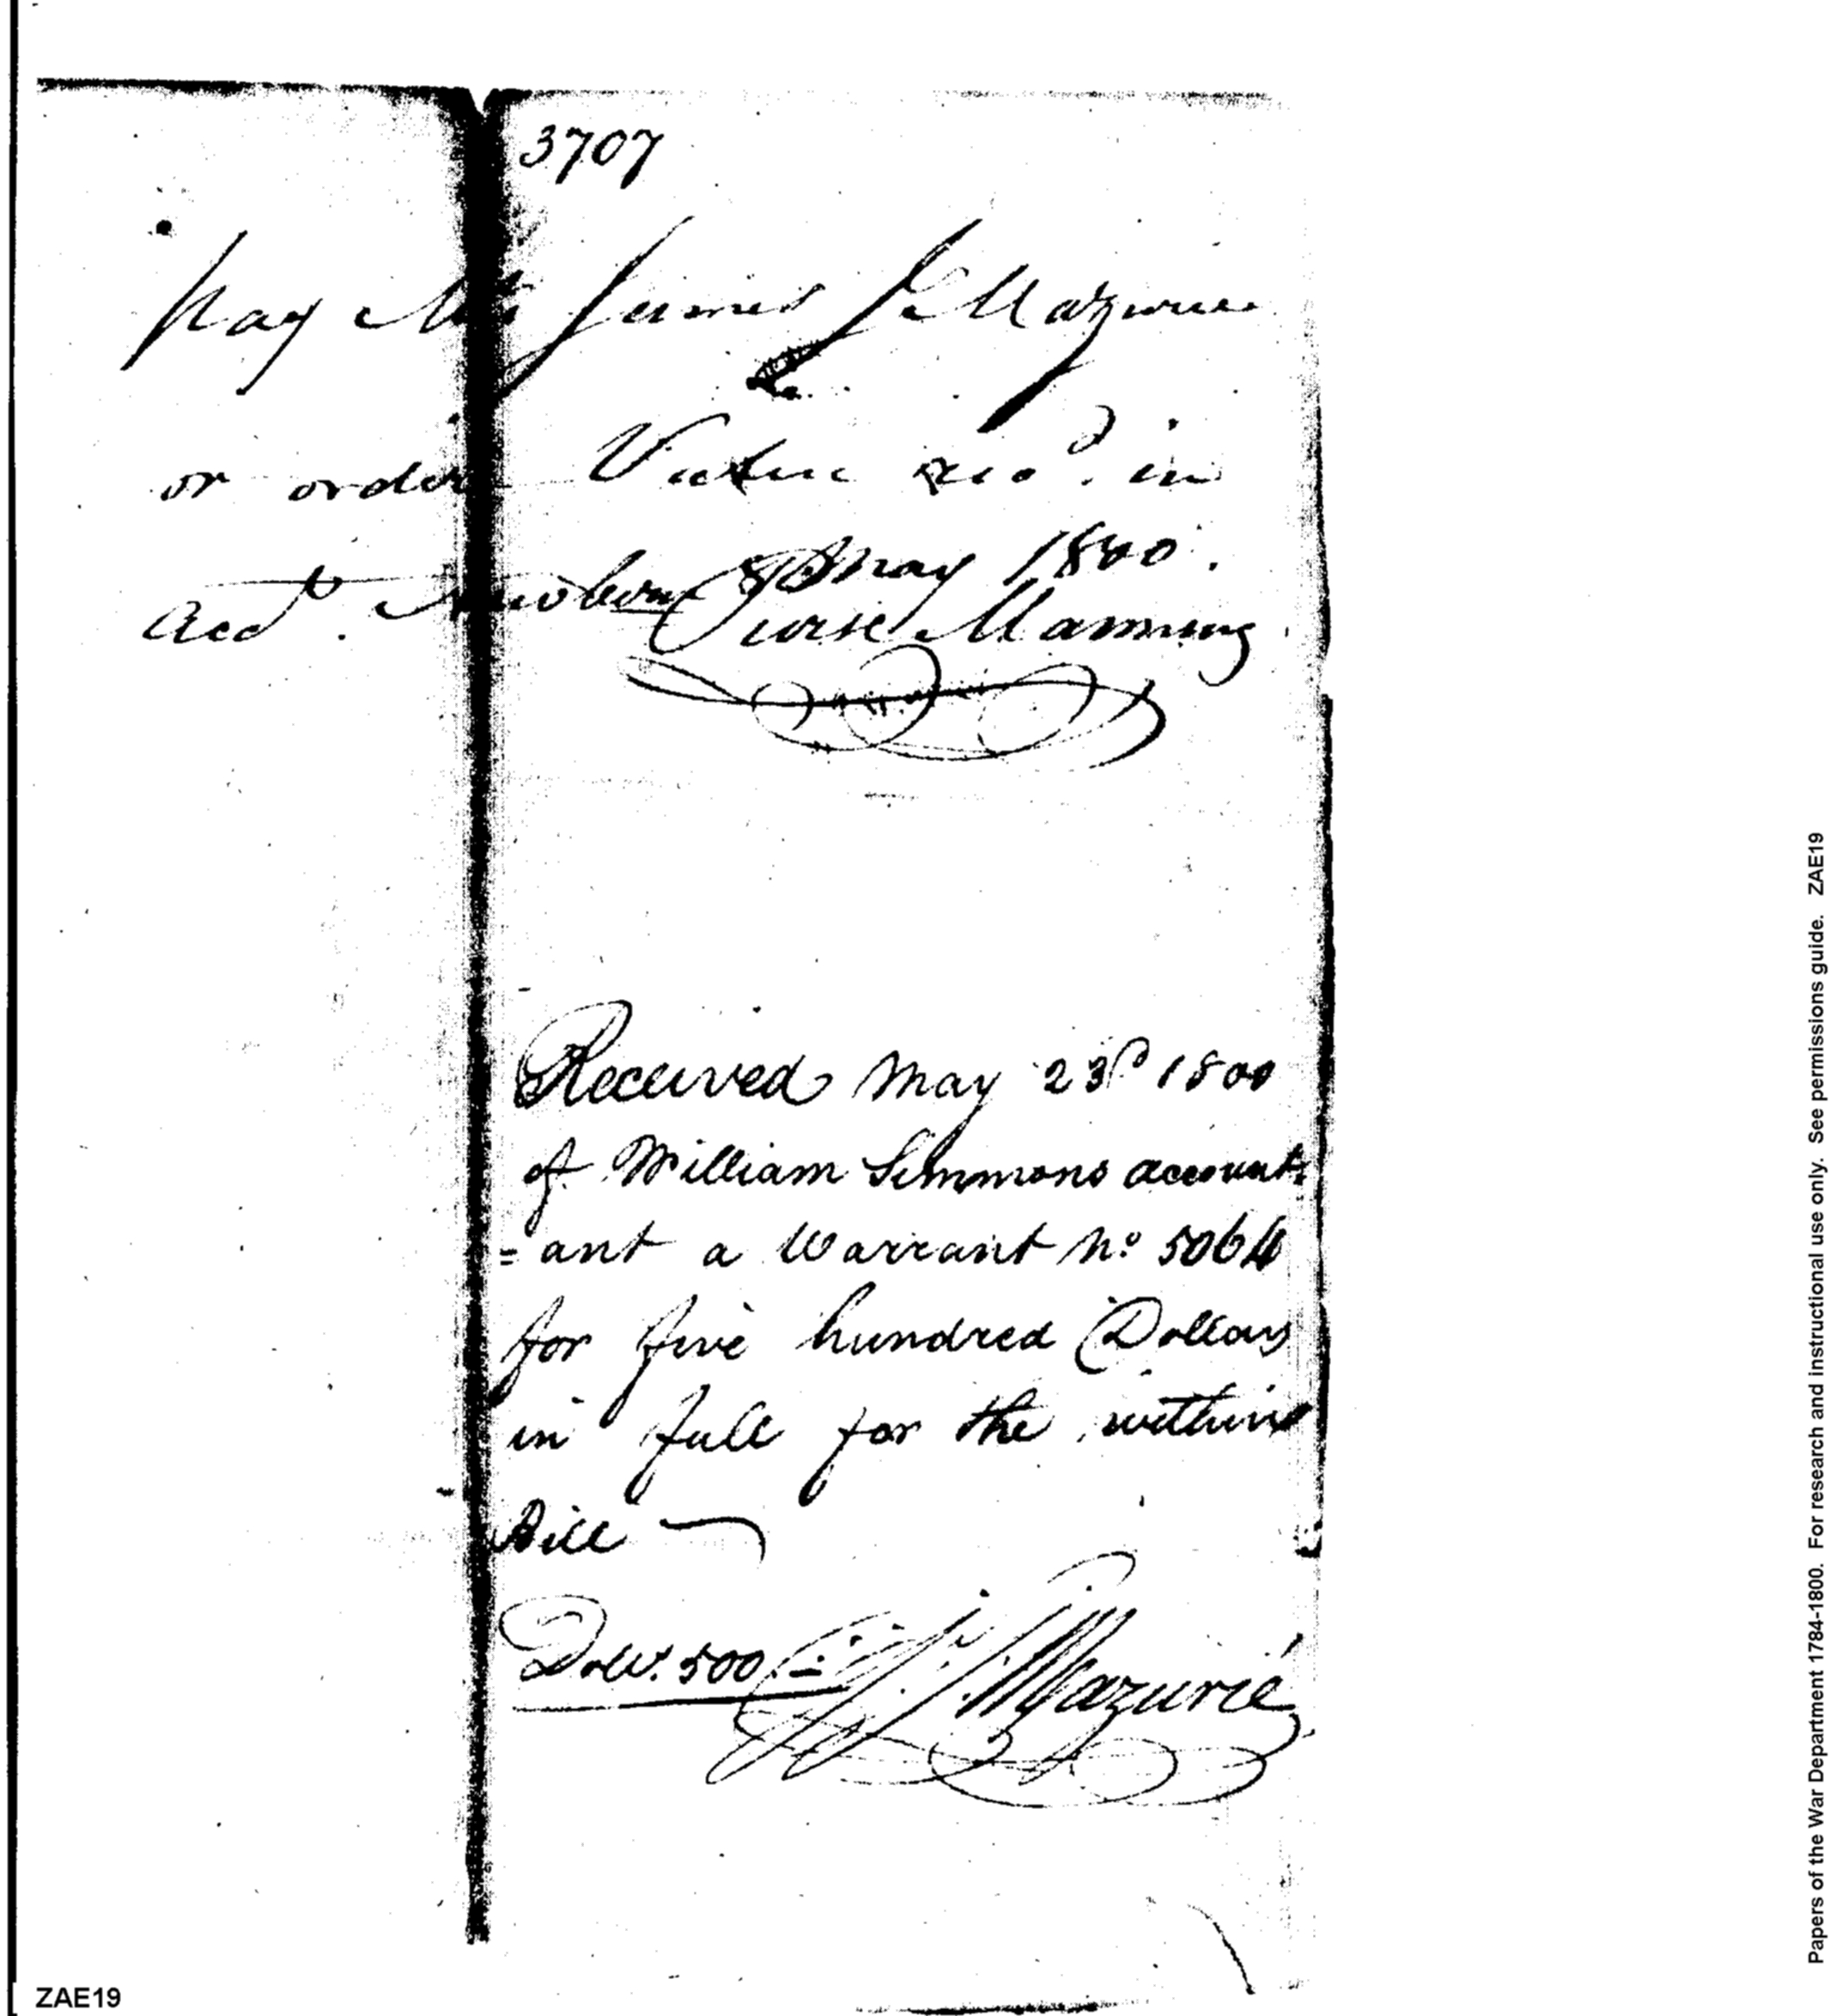 3707
Pay Mr James J. Mazurie
or order Value recd. in
Acct. Newbern 8 May 1800.
Pierse Manning
Received May 23d 1800
of William Simmons account
=ant a Warrant No 5064
for five hundred Dollars
in full for the within
Bill
Dolls. 500.
J. J. Mazurié
ZAE19
Papers of the War Department 1784-1800. For research and instructional use only. See permissions guide. ZAE19